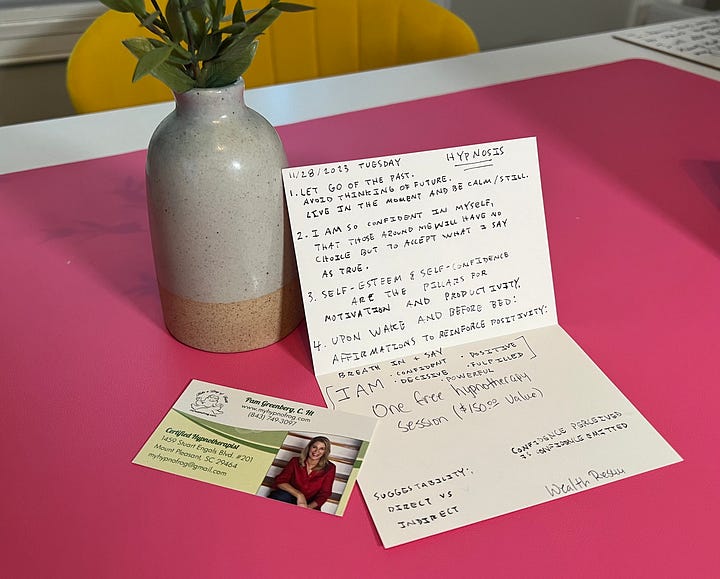 11/28/2023 TUESDAY
HYPNOSIS
1. LET GO OF THE PAST.
AVOID THINKING OF FUTURE.
LIVE IN THE MOMENT AND BE CALM/STILL.
2. I AM SO CONFIDENT IN MYSELF,
THAT THOSE AROUND ME WILL HAVE NO
CHOICE BUT TO ACCEPT WHAT I SAY
AS TRUE.
3. SELF-ESTEEM & SELF-CONFIDENCE
ARE THE PILLARS FOR
MOTIVATION AND PRODUCTIVITY.
4. UPON WAKE AND BEFORE BED:
AFFIRMATIONS TO REINFORCE POSITIVITY:
BREATH IN + SAY
[I AM · CONFIDENT · POSITIVE
· DECISIVE · FULFILLED]
· POWERFUL
One free hypnotherapy
Session ($150.00 value)
CONFIDENCE PERCEIVED
IS CONFIDENCE EMITTED
SUGGESTABILITY:
DIRECT VS
INDIRECT
Wealth
Pam Greenberg, C. Ht
www.myhypnofrog.com
(843) 749-3097
Certified Hypnotherapist
1459 Stuart Engals Blvd. #201
Mount Pleasant, SC 29464
myhypnofrog@gmail.com